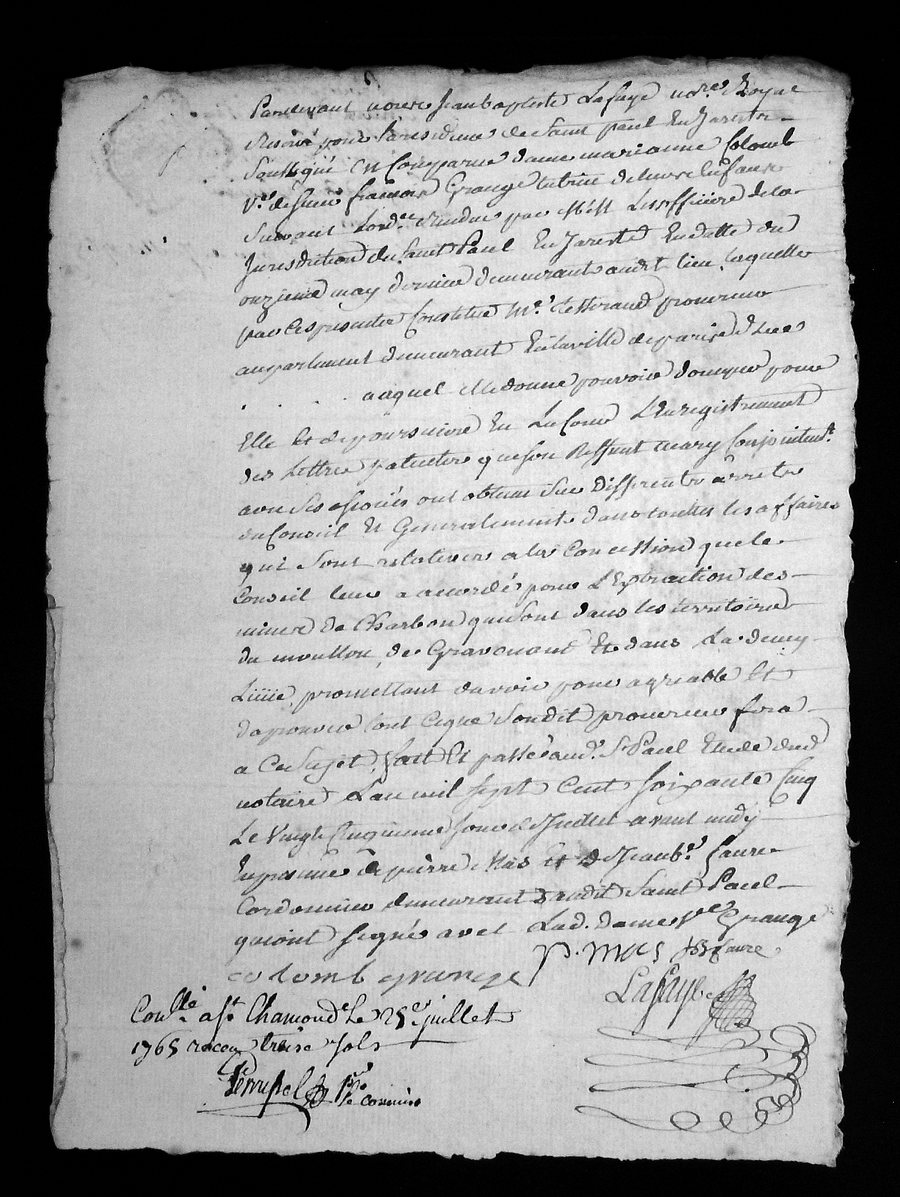 Pardevant notere Jean baptiste Lafaye no.re Royal
Reservé pour la residence de Saint paul En Jarestz
Soussigné Est Comparue dame marianne Colomb
V.e de sieur francois Grange tutrice de leurs Enfans
Suivant lord.ce Rendue par MM Les officiers de la
Jurisdiction de Saint Paul En Jarestz En datte du
onzieme may dernier demeurante audit lieu, laquelle
par ces presentes Constitue M.e procureur
au parlement demeurant En la ville de paris
auquel Elle donne pouvoir doccuper pour
Elle Et de poursuivre En La Cour L'Enregistrement
des Lettres patentes que son deffunt mary Conjointem.t
avec Ses associés ont obtenu Sur Differents arrets
du Conseil Et Generalement dans toutes les affaires
qui Sont relatives a la Concession que le
Conseil leur a accordés pour L'Extraction des
mines de Charbon qui sont dans les territoires
du moullon, de Gravenand Et dans La demy
Lieüe, promettant davoir pour agreable Et
daprouver tout Ceque Sondit procureur fera
a Ce Sujet, fait Et passé aud. S.t Paul Etude dud
notaire L'an mil Sept Cent Soixante Cinq
Le Vingt Cinquieme Jour de Juillet avant midy
En presence de pierre Mas Et de Jean b.te faure
Cordonnier demeurant audit Saint Paul
qui ont Signés avec Lad. dame V.e Grange
colomb grange P. Mas JB faure
Lafaye
Con.llé a S.t Chamond Le 25.e juillet
1765 reçu treize sols
commis